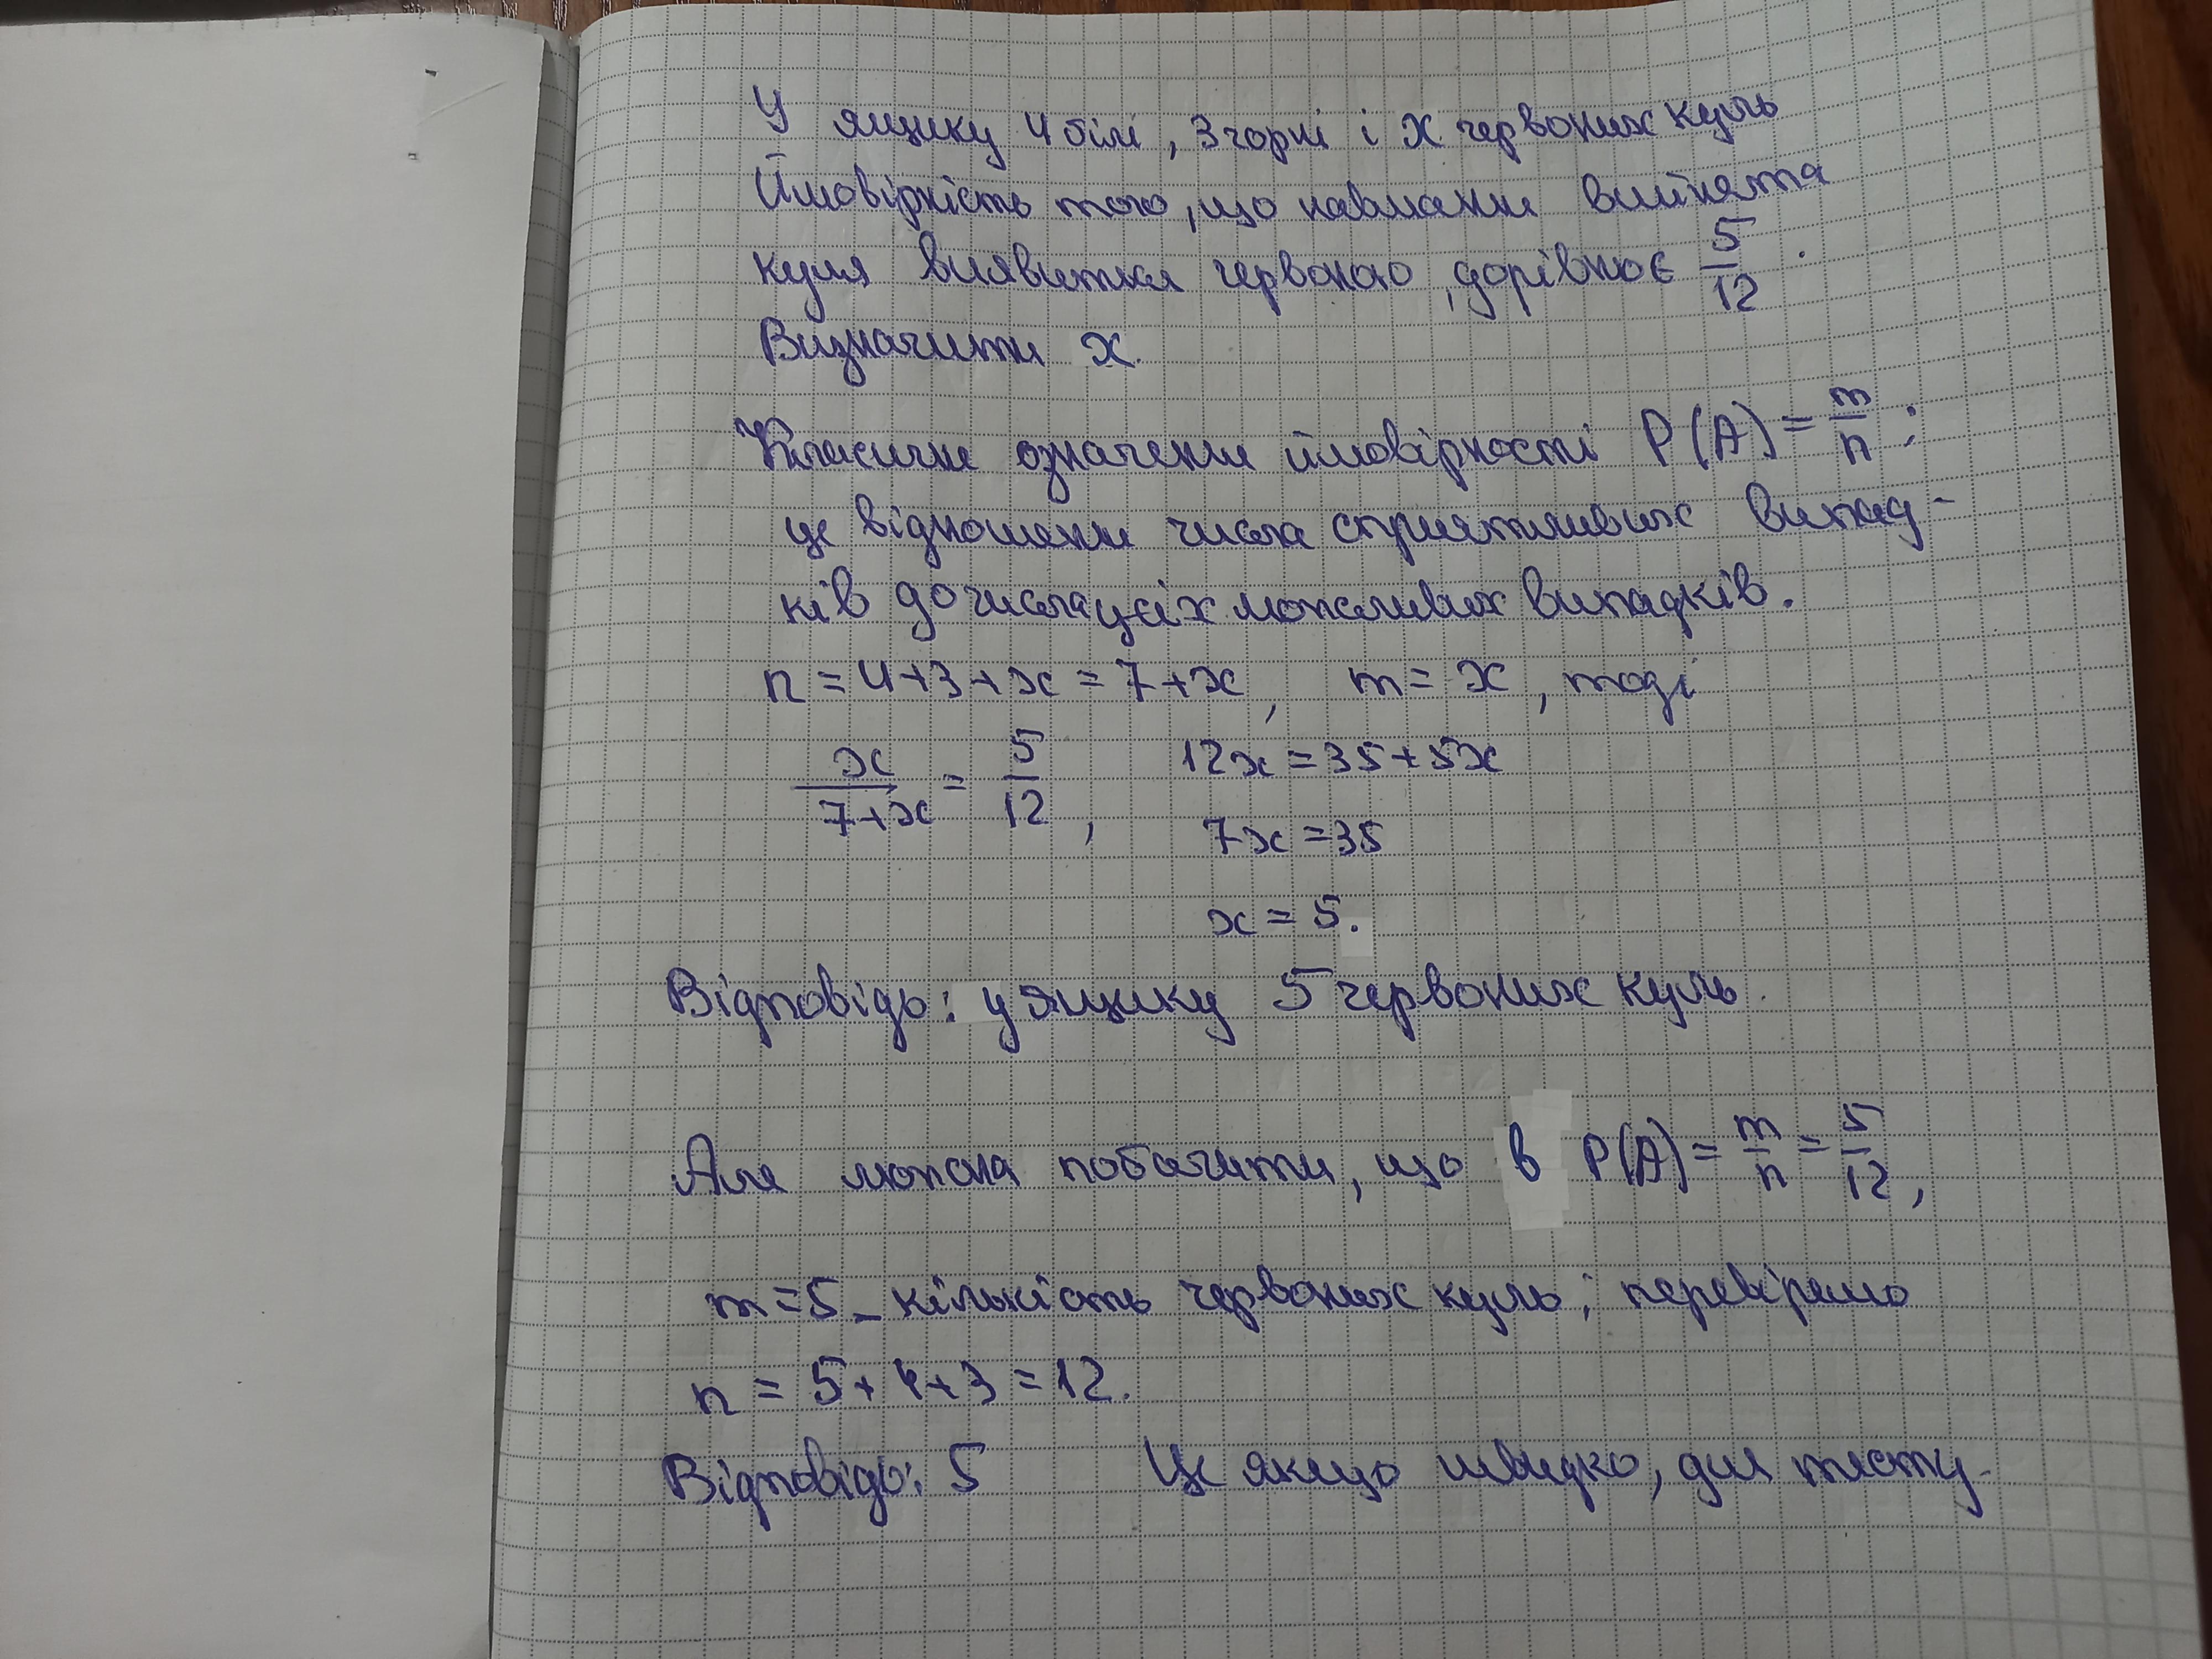 У ящику 4 білі, 3 чорні і x червоних куль
Ймовірність того, що навмання вийнята
куля виявиться червоною, дорівнює 5/12.
Визначити x.
Класичне означення ймовірності P(A) = m/n;
це відношення числа сприятливих випад-
ків до числа усіх можливих випадків.
n = 4+3+x = 7+x, m = x, тоді
x/(7+x) = 5/12, 12x = 35+5x
7x = 35
x = 5.
Відповідь: у ящику 5 червоних куль.
Але можна побачити, що в P(A) = m/n = 5/12,
m = 5 – кількість червоних куль; перевіримо
n = 5+4+3 = 12.
Відповідь: 5 Це якщо швидко, для тесту.